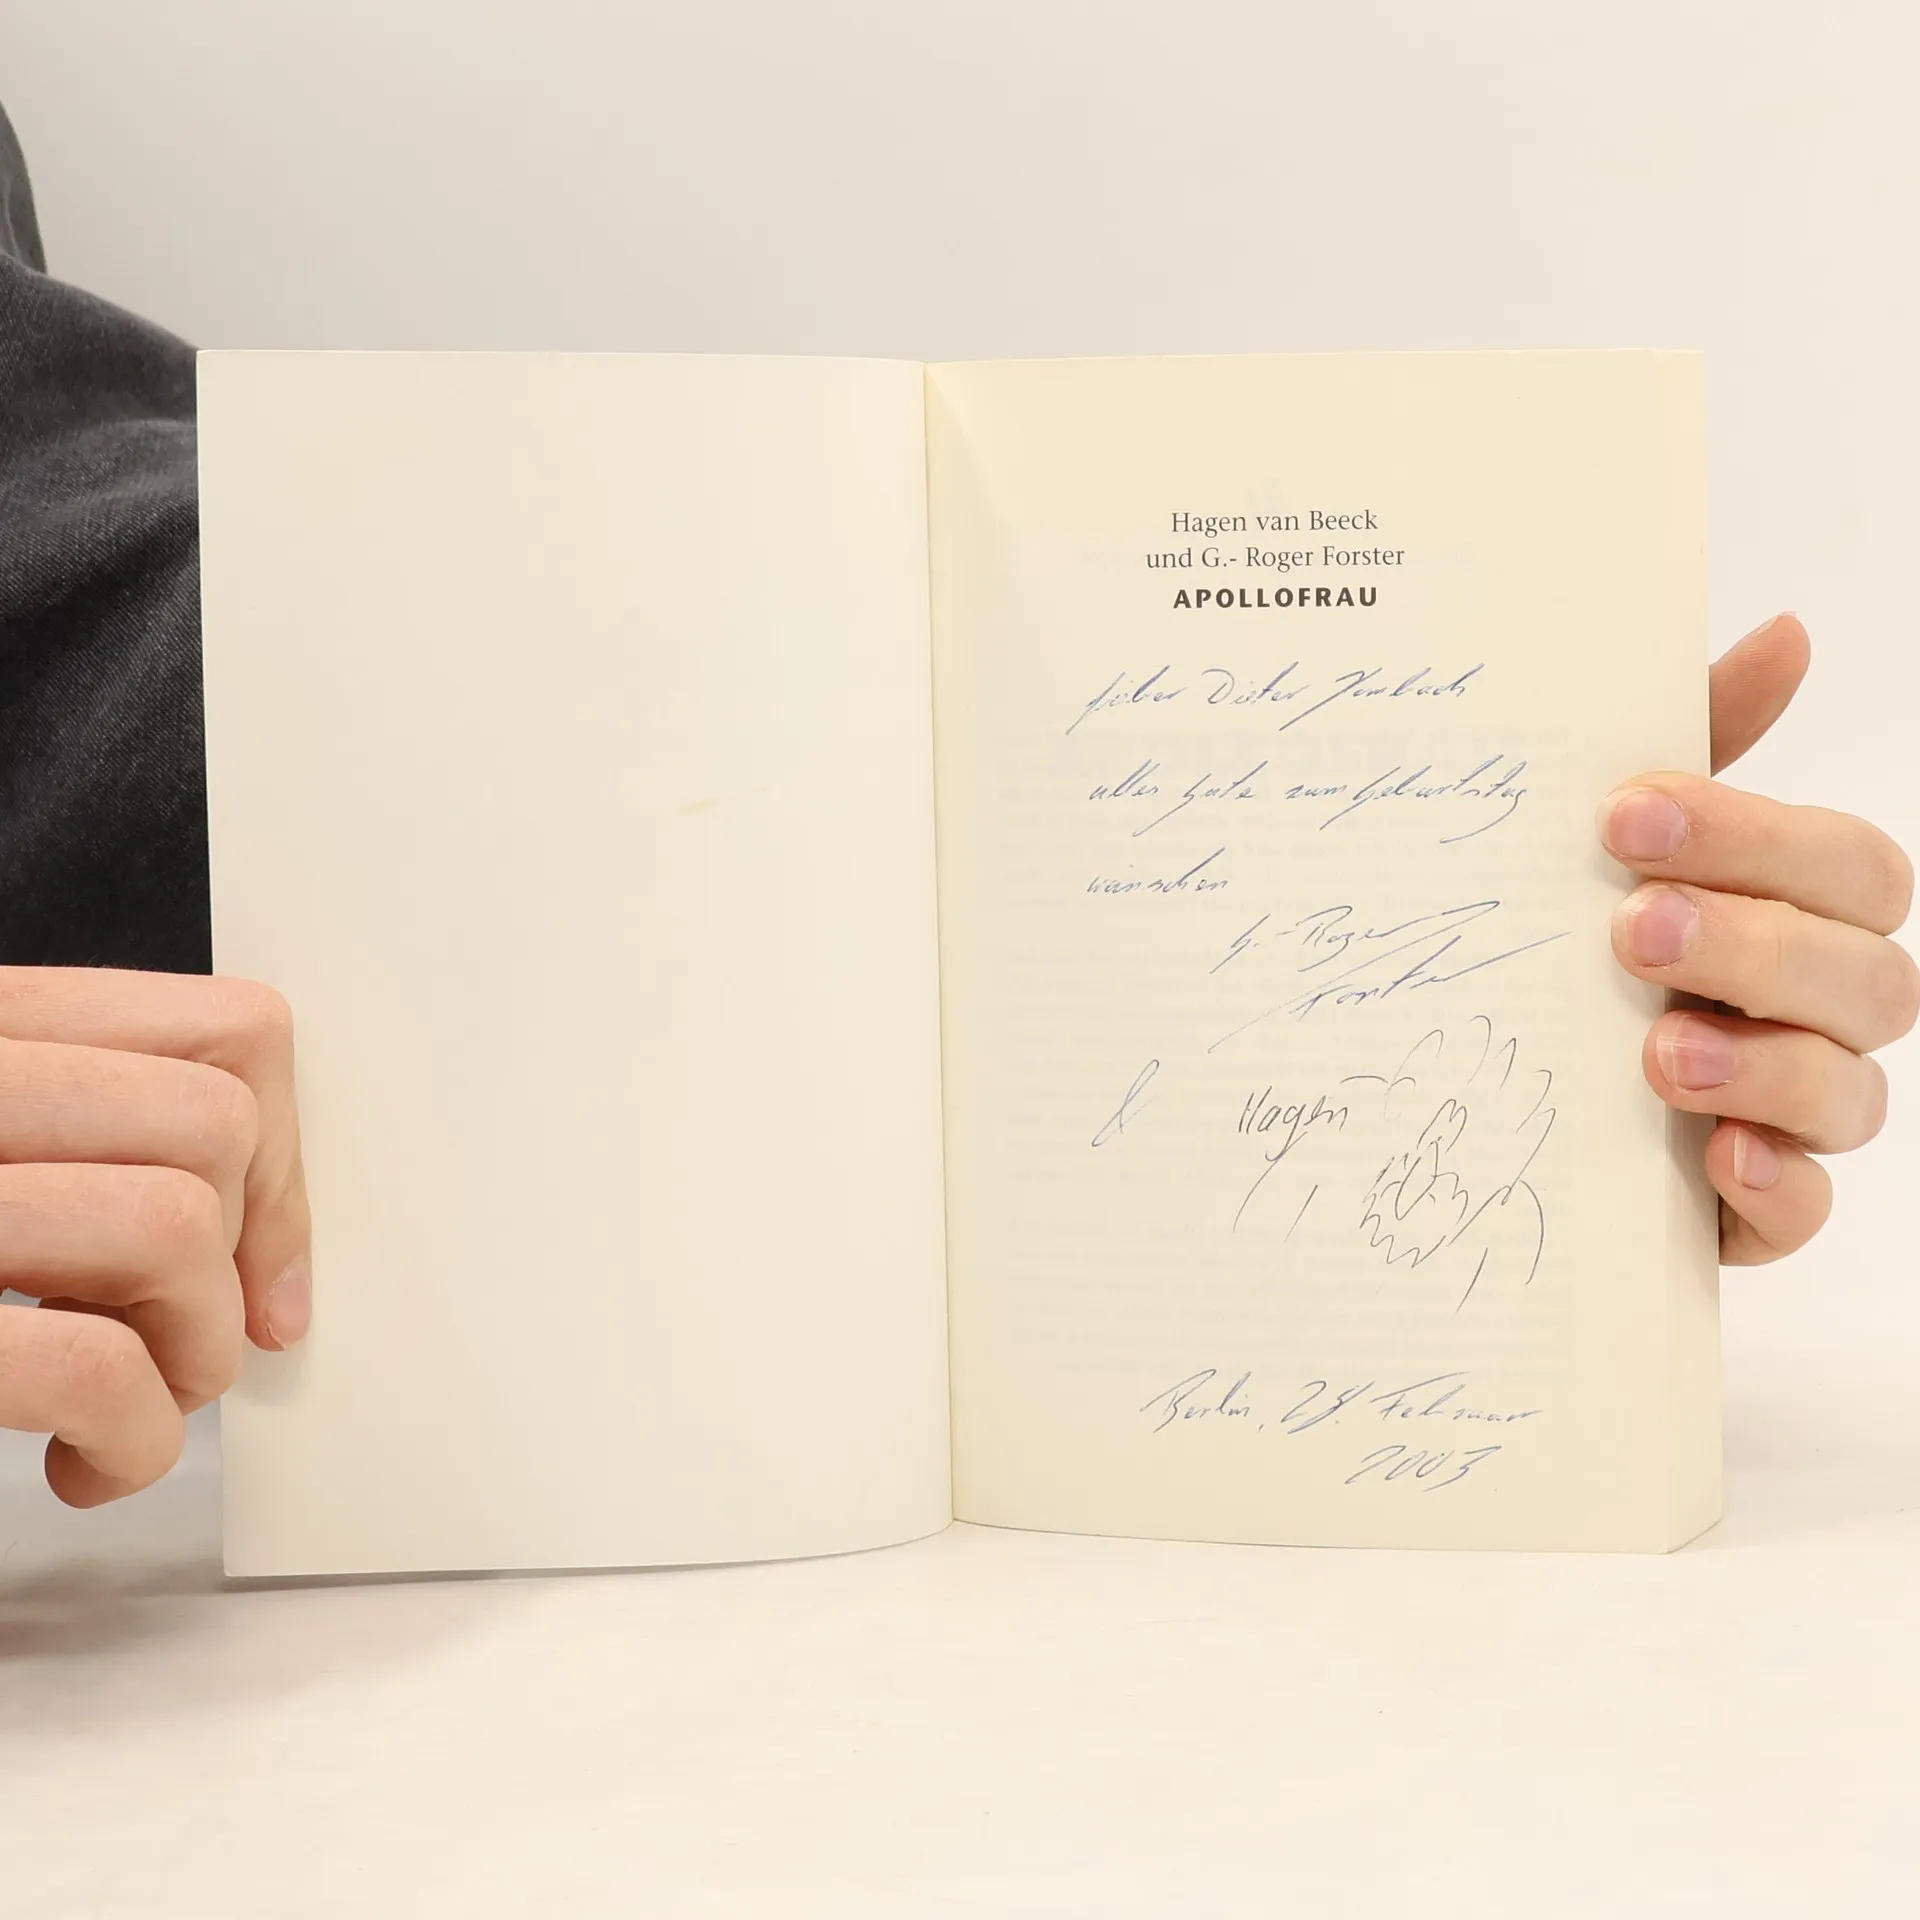 Hagen van Beeck
und G.- Roger Forster
APOLLOFRAU
Lieber Dieter
alles Gute zum Geburtstag
wünschen
G.-Roger
Forster
& Hagen
Berlin, 28. Februar
2003